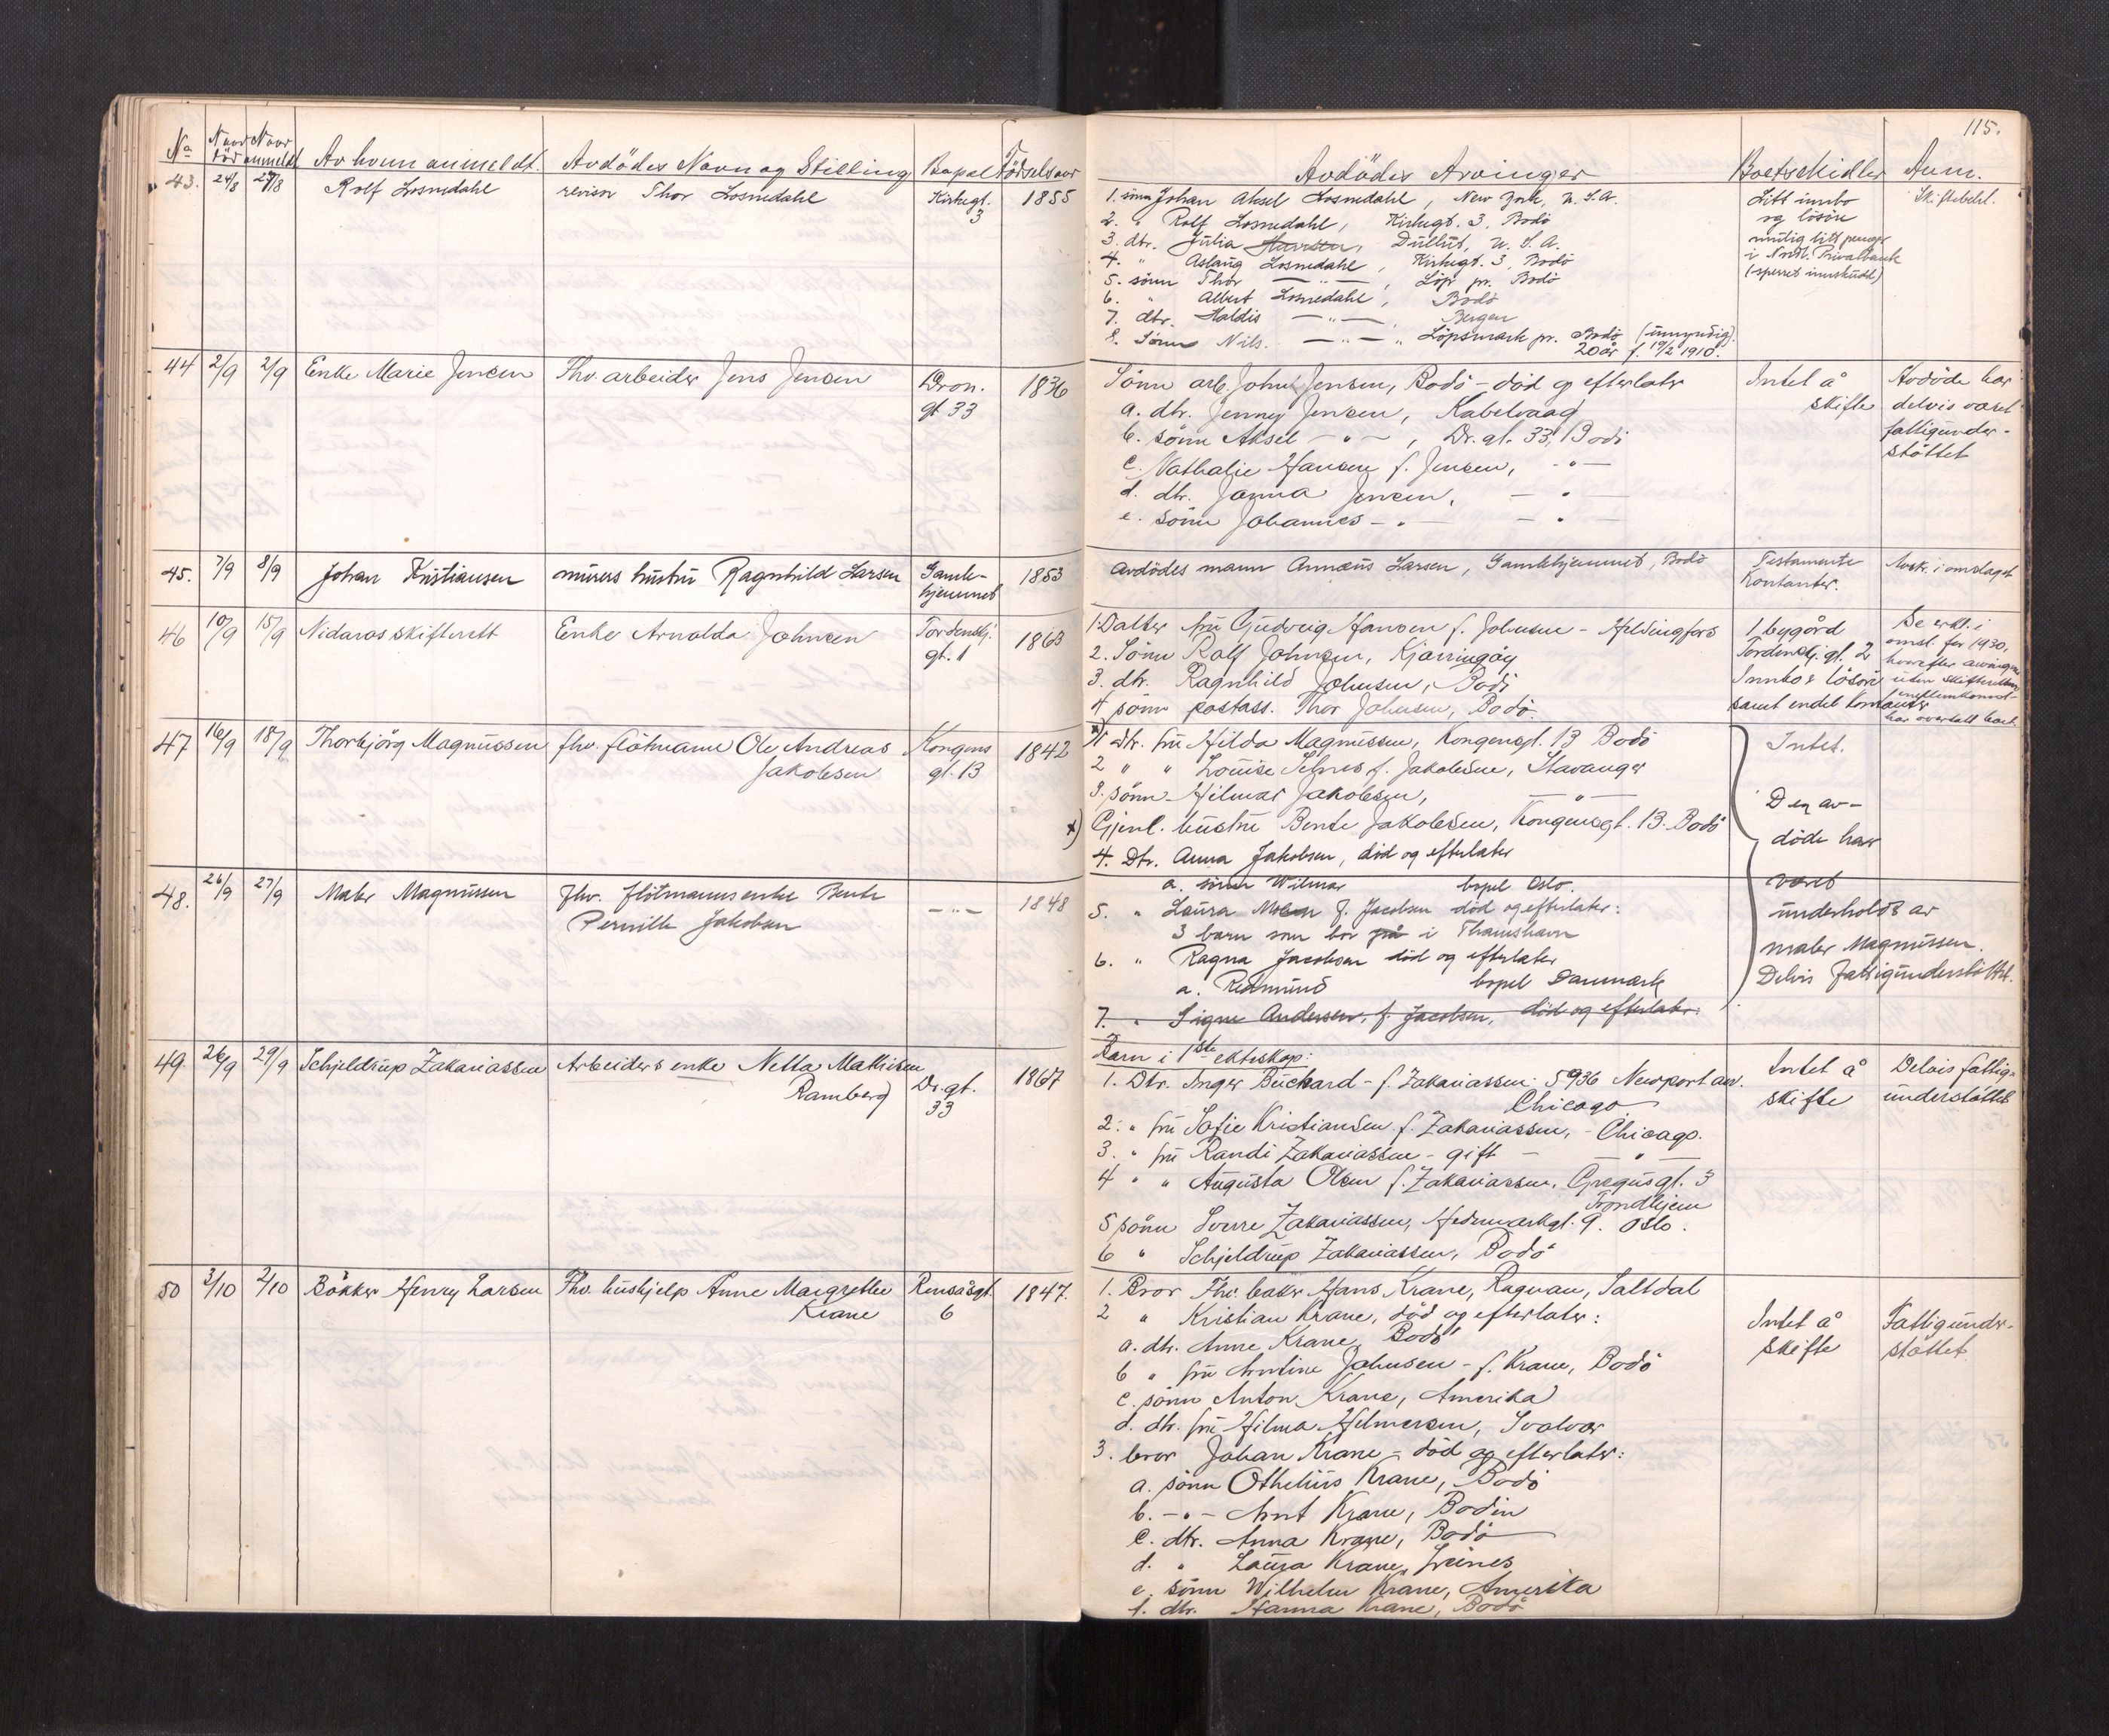 115.
No Naar död Naar anmeldt Av hvem anmeldt. Avdödes Navn og Stilling Bopæl Födselsaar
Avdödes Arvinger Boets Midler Anm.
43. 24/8 27/8 Rolf Losnedahl revisor Thor Losnedahl Kirkegt. 1855
3
1. sönn Johan Aksel Losnedahl, New York, U.S.A.
2. " Rolf Losnedahl, Kirkegt. 3, Bodö
3. dtr. Julia Duluth, U.S.A.
4. " Aslaug Losnedahl, Kirkegt. 3, Bodö
5. sönn Thor —"—, Löp pr. Bodö
6. " Albert Losnedahl, Bodö
7. dtr. Haldis —"— Bergen
8. Sönn Nils. —"— " Löpsmark pr. Bodö (umyndig).
20 år f. 19/2 1910.
Litt innbo
og lösöre
mulig litt penger
i Nordl. Privatbank
(sperret innskudd)
Skiftebehl.
44 2/9 2/9 Enke Marie Jensen Fhv. arbeider Jens Jensen Dron. 1836
gt 33
Sönn arb. John Jensen, Bodö - död og efterlater
a. dtr. Jenny Jensen, Kabelvaag
b. sönn Aksel -"-, Dr. gt. 33, Bodö
c. Nathalie Hansen f. Jensen, -"-
d. dtr. Janna Jensen, — " —
e. sönn Johannes - " - — " —
Intet å
skifte
Avdöde har
delvis været
fattigunder-
stöttet
45. 7/9 8/9 Johan Kristiansen murers hustru Ragnhild Larsen Gamle- 1853
hjemmet
avdödes mann Annæus Larsen, Gamlehjemmet, Bodö
Testamente
Kontanter.
Avsk. i omslaget
46 10/9 15/9 Nidaros skifterett Enke Arnolda Johnsen Tordenskj. 1863
gt. 1
1. Datter fru Gudveig Hansen f. Johnsen - Helsingfors
2. Sönn Rolf Johnsen, Kjerringöy
3. dtr. Ragnhild Johnsen, Bodö
4 sönn postass. Thor Johnsen, Bodö
1 bygård
Tordenskj. gt. 2
Innbo & lösöre
samt endel kontanter
Se erkl. i
omsl. for 1930,
hvorefter arvingene
uten skifterettens
mellemkomst
har overtatt boet.
47 16/9 18/9 Thorbjörg Magnussen fhv. flötmann Ole Andreas Kongens 1842
Jakobsen gt. 13
x) 1 Dtr. fru Hilda Magnussen, Kongensgt. 13 Bodö
2 " " Louise Selnes f. Jakobsen, Stavanger
3. sönn Hilmar Jakobsen, —"—
x) Gjenl. hustru Bente Jakobsen, Kongensgt. 13. Bodö
4. Dtr. Anna Jakobsen, död og efterlater
a. sönn Wilmar bopel Oslo.
5. " Laura Moen f. Jacobsen död og efterlater:
3 barn som bor på i Thamshavn
6. " Ragna Jacobsen död og efterlater
a. Reidmund bopel Danmark
7. " Signe Andersen, f. Jacobsen, död og efterlater:
Intet.
Den av-
döde har
været
underholdt av
maler Magnussen.
Delvis fattigunderstöttet.
48. 26/9 27/9 Maler Magnussen Fhv. flötmannsenke Bente —"— 1848
Pernille Jakobsen
49. 26/9 29/9 Schjeldrup Zakariassen Arbeiders enke Netta Mathisen 1867
Ramberg Dr. gt.
33
Barn i 1ste ekteskap:
1. Dtr. Inger Buchard - f. Zakariassen. 5936 Newport av.
Chicago
2. " fru Sofie Kristiansen f. Zakariassen, - Chicago.
3. " fru Randi Zakariassen - gift — " —
4 " " Augusta Olsen f. Zakariassen, Gregusgt. 3
Trondhjem
5 sönn Sverre Zakariassen, Hedemarkgt. 9. Oslo.
6 " Schjeldrup Zakariassen, Bodö
Intet å
skifte
Delvis fattig-
understöttet
50 2/10 2/10 Bökker Henry Larsen Fhv. hushjelp Anne Margrethe Rensåsgt. 1847.
Krane 6
1. Bror Fhv. baker Hans Krane, Rognan, Saltdal
2 " Kristian Krane, död og efterlater:
a. dtr. Anne Krane, Bodö
b " fru Antine Johnsen - f. Krane, Bodö
c. sönn Anton Krane, Amerika
d. dtr. fru Hilma Hilmersen, Svolvær
3. bror Johan Krane - död og efterlater:
a. sönn Othelius Krane, Bodö
b. -"- Arnt Krane, Bodin
c. dtr. Anna Krane, Bodö
d. " Laura Krane,
e. sönn Wilhelm Krane, Amerika
f. dtr. Hanna Krane, Bodö
Intet å
skifte
Fattigunder-
støttet